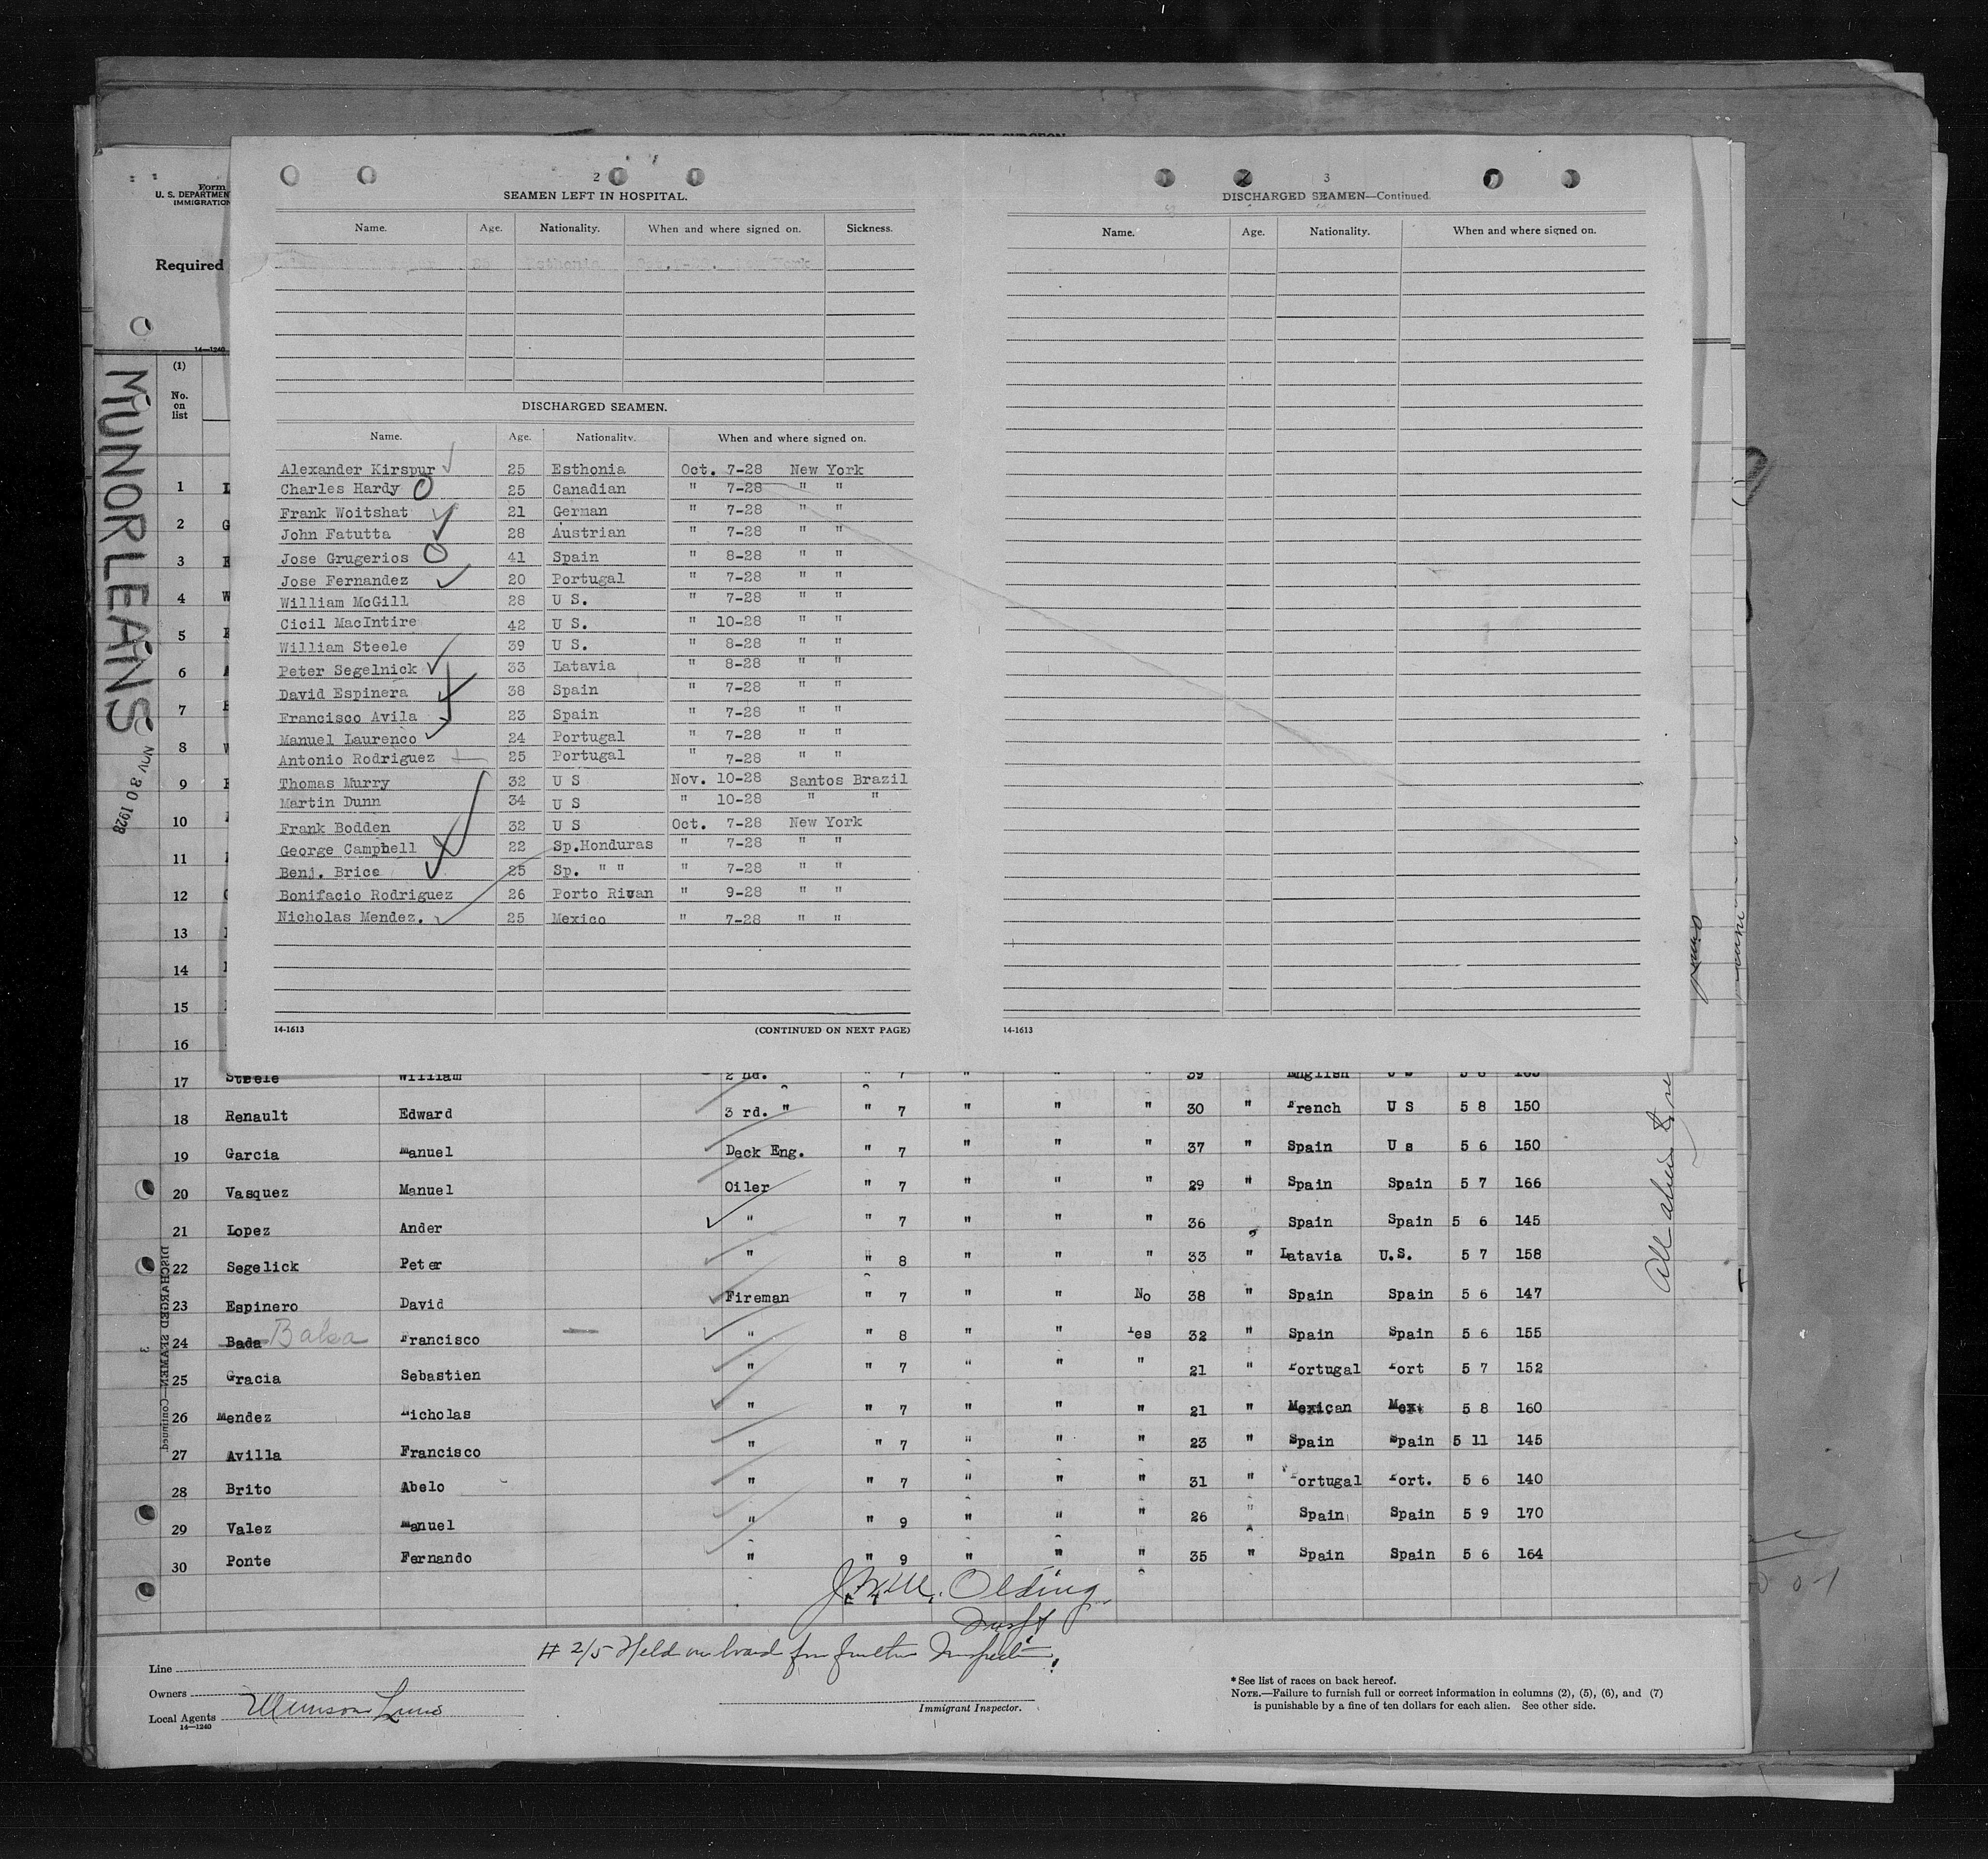 Form
U. S. DEPARTMENT
IMMIGRATION
Required
14—1240
MUNORLEANS
NOV 30 1928
(1)
No. on list
2
SEAMEN LEFT IN HOSPITAL.
Name. Age. Nationality. When and where signed on. Sickness.
DISCHARGED SEAMEN.
Name. Age. Nationality. When and where signed on.
Alexander Kirspur 25 Esthonia Oct. 7-28 New York
Charles Hardy 25 Canadian " 7-28 " "
Frank Woitshat 21 German " 7-28 " "
John Fatutta 28 Austrian " 7-28 " "
Jose Grugerios 41 Spain " 8-28 " "
Jose Fernandez 20 Portugal " 7-28 " "
William McGill 28 U S. " 7-28 " "
Cicil MacIntire 42 U S. " 10-28 " "
William Steele 39 U S. " 8-28 " "
Peter Segelnick 33 Latavia " 8-28 " "
David Espinera 38 Spain " 7-28 " "
Francisco Avila 23 Spain " 7-28 " "
Manuel Laurenco 24 Portugal " 7-28 " "
Antonio Rodriguez 25 Portugal " 7-28 " "
Thomas Murry 32 U S Nov. 10-28 Santos Brazil
Martin Dunn 34 U S " 10-28 " "
Frank Bodden 32 U S Oct. 7-28 New York
George Campbell 22 Sp.Honduras " 7-28 " "
Benj. Brice 25 Sp. " " " 7-28 " "
Bonifacio Rodriguez 26 Porto Rican " 9-28 " "
Nicholas Mendez. 25 Mexico " 7-28 " "
14-1613 (CONTINUED ON NEXT PAGE)
3
DISCHARGED SEAMEN—Continued.
Name. Age. Nationality. When and where signed on.
14-1613
1
2
3
4
5
6
7
8
9
10
11
12
13
14
15
16
17 Steele William 2 nd. " 7 " " " 39 English U S 5 8
18 Renault Edward 3 rd. " " 7 " " " 30 " French U S 5 8 150
19 Garcia Manuel Deck Eng. " 7 " " " 37 " Spain U s 5 6 150
20 Vasquez Manuel Oiler " 7 " " " 29 " Spain Spain 5 7 166
21 Lopez Ander " " 7 " " " 36 " Spain Spain 5 6 145
22 Segelick Peter " " 8 " " " 33 " Latavia U.S. 5 7 158
23 Espinero David Fireman " 7 " " No 38 " Spain Spain 5 6 147
24 Bada Balsa Francisco " " 8 " " Yes 32 " Spain Spain 5 6 155
25 Gracia Sebastien " " 7 " " " 21 " Portugal Port 5 7 152
26 Mendez Nicholas " " 7 " " " 21 " Mexican Mex. 5 8 160
27 Avilla Francisco " " 7 " " " 23 " Spain Spain 5 11 145
28 Brito Abelo " " 7 " " " 31 " Portugal Port. 5 6 140
29 Valez Manuel " " 9 " " " 26 " Spain Spain 5 9 170
30 Ponte Fernando " " 9 " " " 35 " Spain Spain 5 6 164
DISCHARGED SEAMEN—Continued.
3
Olding
Insp
# 2/5 Held on board for further Inspection
Line
Owners
Local Agents Munson Line
14—1240
Immigrant Inspector.
* See list of races on back hereof.
NOTE.—Failure to furnish full or correct information in columns (2), (5), (6), and (7)
is punishable by a fine of ten dollars for each alien. See other side.